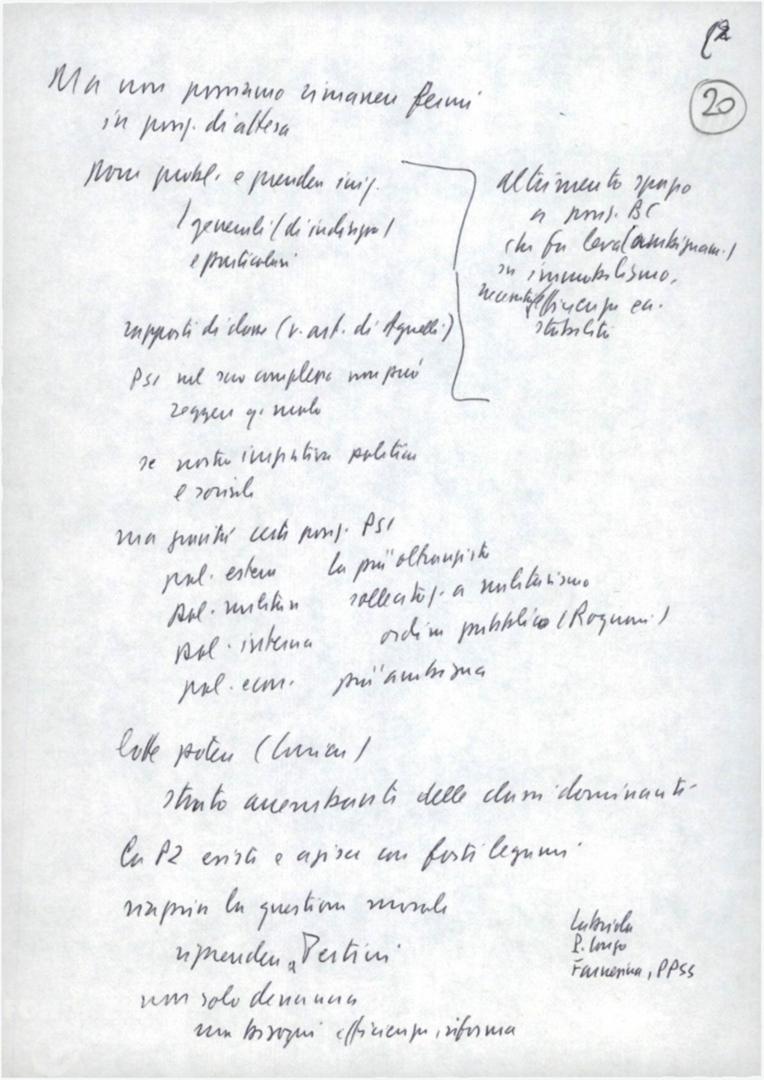 20
Ma non possiamo rimanere fermi
in posiz. di attesa
porre probl. e prendere iniz.
generali (di indirizzo)
e particolari
altrimenti spazio
a posiz. BC
che fa leva (ambiguam.)
su immobilismo,
necessità efficienza ed.
stabilità
rapporti di classe (v. art. di Agnelli)
PSI nel suo complesso non può
reggere qs. ruolo
se nostra iniziativa politica
e sociale
ma gravità certe posiz. PSI
pol. estera la più oltranzista
pol. militare sollecitaz. a militarismo
pol. interna ordine pubblico (Rognoni)
pol. econ. più ambigua
lotte potere
strato delle classi dominanti
La P2 esiste e agisce con forti legami
riaprire la questione morale
riprendere Pertini
non solo denuncia
ma bisogni efficienza, riforma
Labriola
P. Longo
Farnesina, PPSS